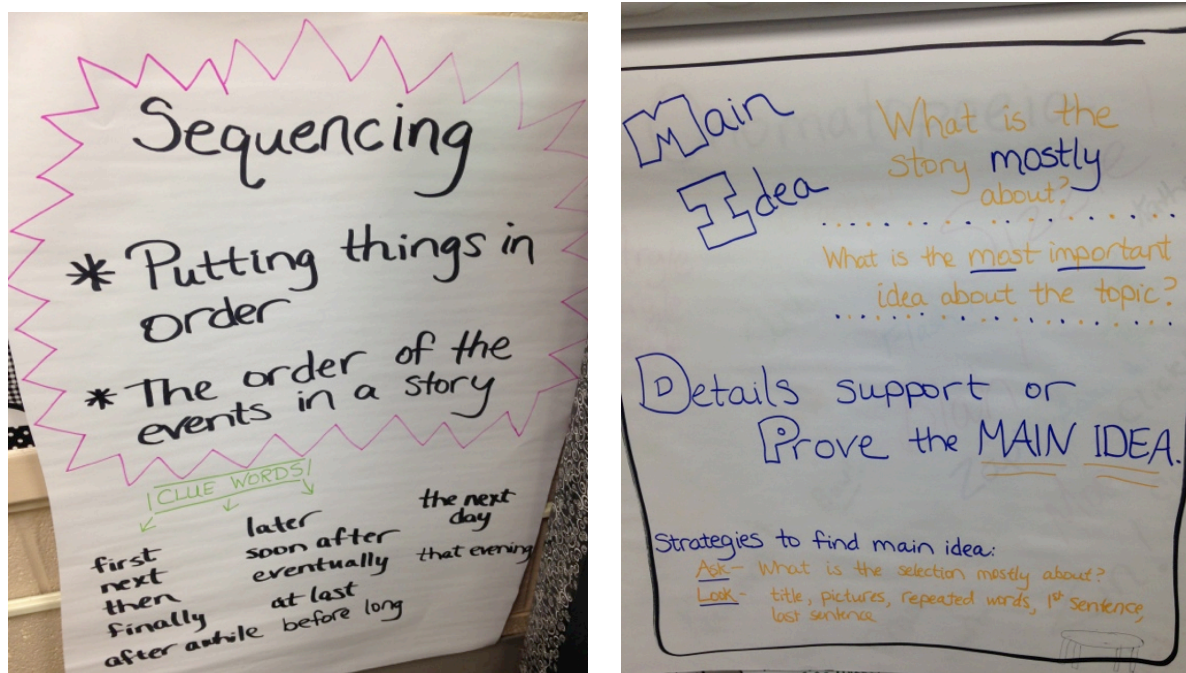 Sequencing
* Putting things in
order
* The order of the
events in a story
CLUE WORDS
first
next
then
finally
after awhile
later
soon after
eventually
at last
before long
the next
day
that evening
Main
Idea
What is the
story mostly
about?
What is the most important
idea about the topic?
Details support or
Prove the MAIN IDEA.
Strategies to find main idea:
Ask - What is the selection mostly about?
Look - title, pictures, repeated words, 1st sentence,
last sentence